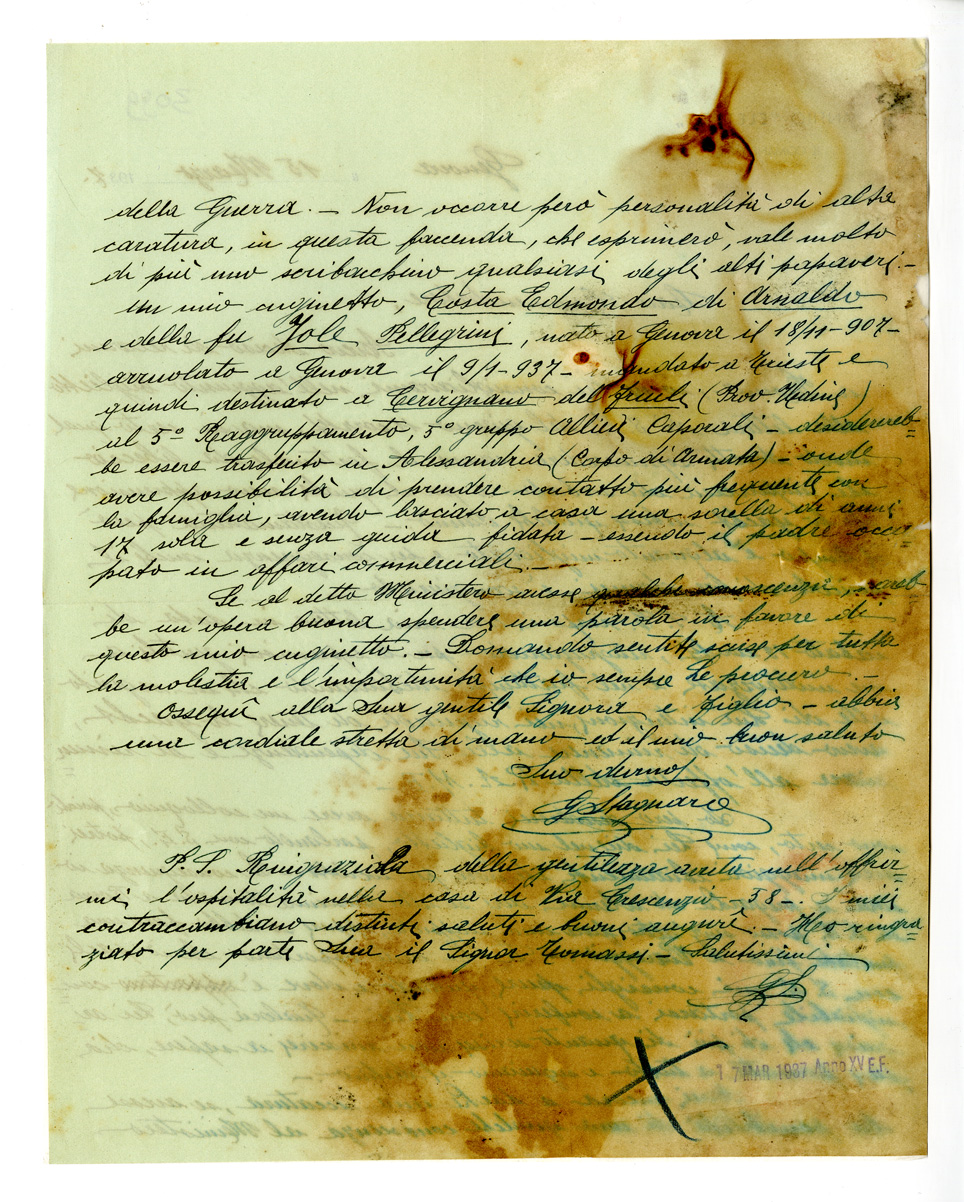 della Guerra. - Non occorre però personalità di alta
caratura, in questa faccenda, che esprimerò, vale molto
di più uno scribacchino qualsiasi degli alti papaveri. -
Un mio cuginetto, Costa Edmondo di Arnaldo
e della fu Jole Pellegrini, nato a Genova il 18/11-907-
arruolato a Genova il 9/1-937- mandato a Trieste e
quindi destinato a Cervignano del Friuli (Prov. Udine)
al 5º Raggruppamento, 5º gruppo Allievi Caporali - desiderereb=
be essere trasferito in Alessandria (Corpo di Armata) - onde
avere possibilità di prendere contatto più frequente con
la famiglia, avendo lasciato a casa una sorella di anni
17 sola e senza guida fidata - essendo il padre occu=
pato in affari commerciali. -
Se al detto Ministero avesse qualche conoscenza, - fareb=
be un'opera buona spendere una parola in favore di
questo mio cuginetto. - Domando sentite scuse per tutta
la molestia e l'importunità che io sempre Le procuro. -
Ossequî alla Sua gentile Signora e Figlio - abbia
una cordiale stretta di mano ed il mio buon saluto
Suo devmo
G Stagnaro
P. S. RingrazioLa della gentilezza avuta nell'offrir=
mi l'ospitalità nella casa di Via Crescenzio - 58 -. I miei
contraccambiano distinti saluti e buoni augurî. - Ho ringra=
ziato per parte Sua il Signor Tomassi. - Salutissimi
GS.
17 MAR 1937 Anno XV E.F.